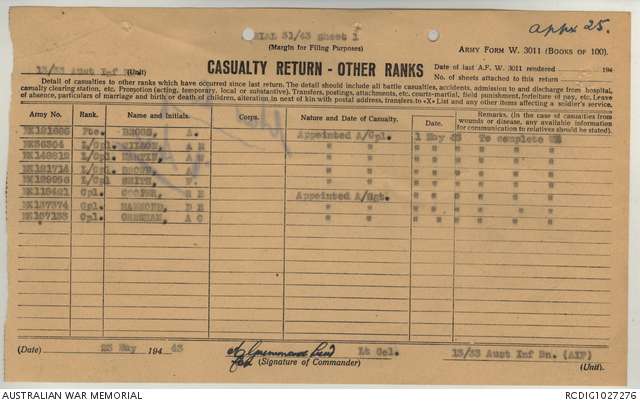 SERIAL 31/43 Sheet 1
appx 25.
(Margin for Filing Purposes)
ARMY FORM W. 3011 (BOOKS OF 100).
13/33 Aust Inf Bn (Unit)
CASUALTY RETURN - OTHER RANKS
Date of last A.F. W. 3011 rendered 194
No. of sheets attached to this return
Detail of casualties to other ranks which have occurred since last return. The detail should include all battle casualties, accidents, admission to and discharge from hospital,
casualty clearing station, etc. Promotion (acting, temporary, local or substantive). Transfers, postings, attachments, etc. courts-martial, field punishment, forfeiture of pay, etc. Leave
of absence, particulars of marriage and birth or death of children, alteration in next of kin with postal address, transfers to «X» List and any other items affecting a soldier's service.
Army No. Rank. Name and Initials. Corps. Nature and Date of Casualty. Date. Remarks. (In the case of casualties from
wounds or disease, any available information
for communication to relatives should be stated).
Pte. A. Appointed A/Cpl. 1 May 43 To complete WE
L/Cpl. WILSON, A " " " " " " " "
L/Cpl. MARTIN, " " " " " " " "
L/Cpl. " " " " " " " "
L/Cpl SMITH, " " " " " " " "
Cpl. COOPER, Appointed A/Sgt. " " " " " "
Cpl. " " " " " " " "
Cpl. A C " " " " " " " "
(Date) 23 May 194 43
for (Signature of Commander)
Lt Col.
13/33 Aust Inf Bn. (AIF)
(Unit).
AUSTRALIAN WAR MEMORIAL
RCDIG1027276